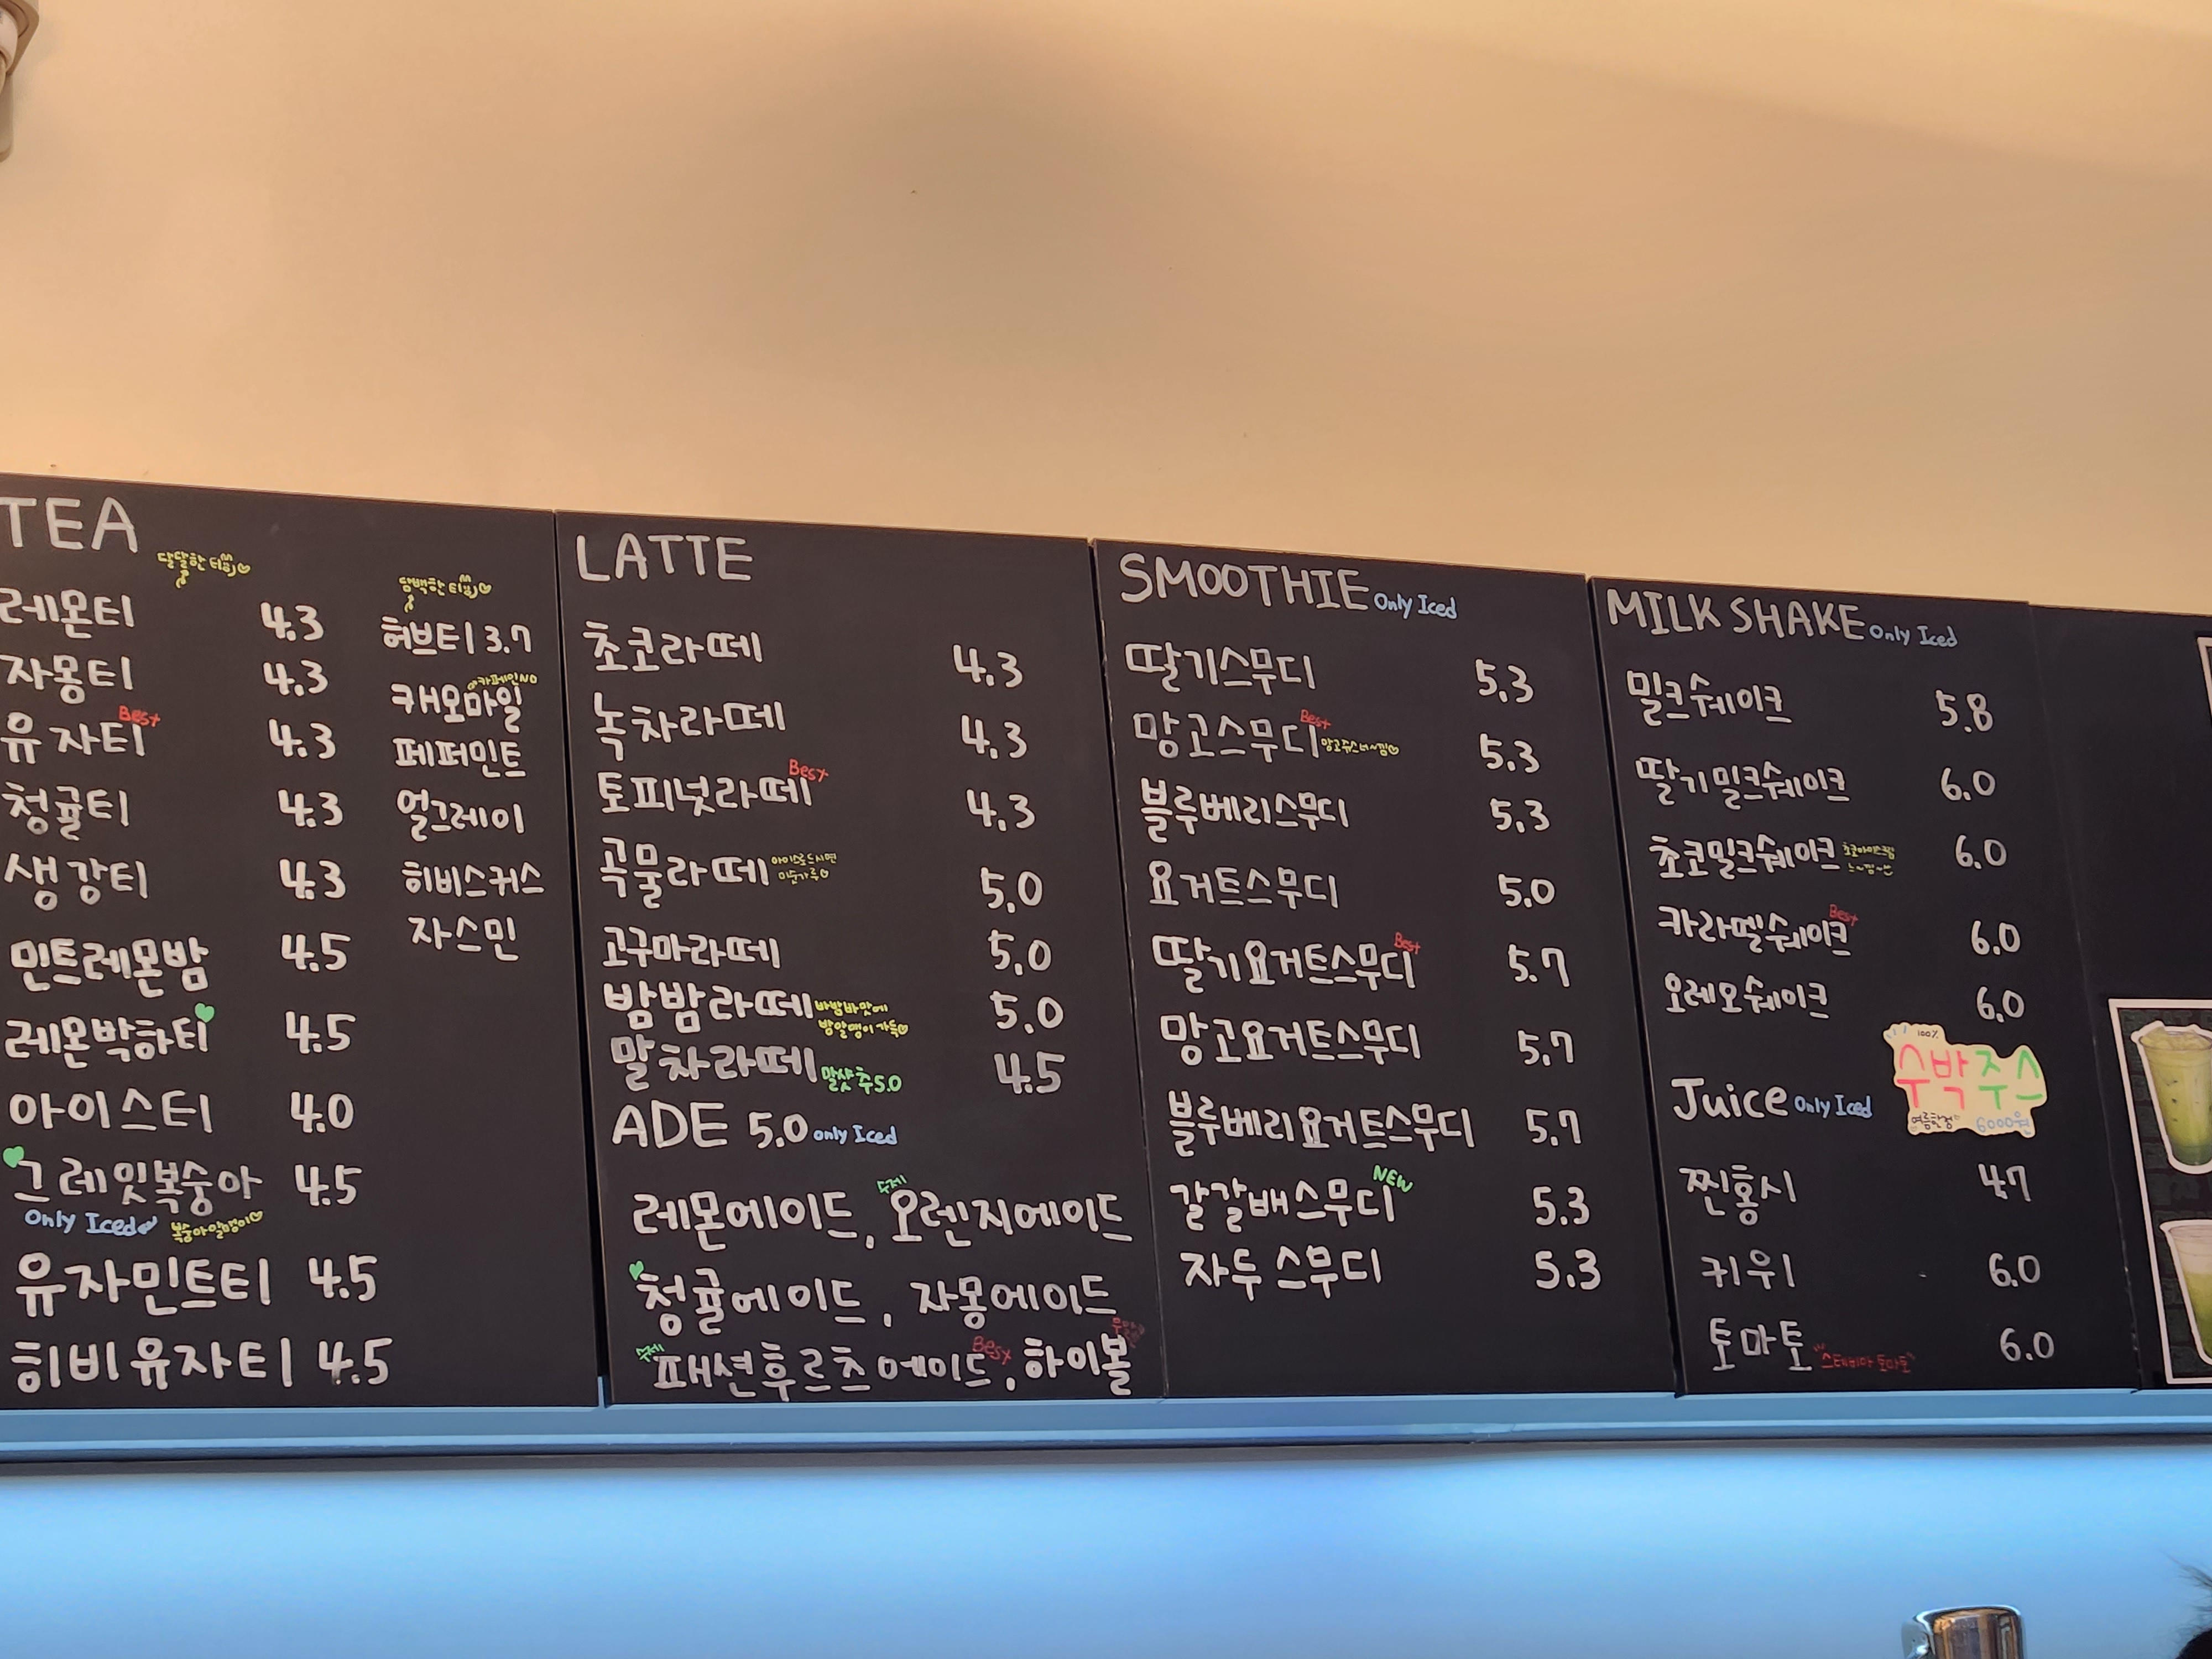 TEA
달달한 티
레몬티 4.3
자몽티 4.3
유자티 Best 4.3
청귤티 4.3
생강티 4.3
민트레몬밤 4.5
레몬박하티 4.5
아이스티 4.0
그레잇복숭아 4.5
Only Iced 복숭아알맹이
유자민트티 4.5
히비유자티 4.5
담백한 티
허브티 3.7
카페인NO
캐모마일
페퍼민트
얼그레이
히비스커스
자스민
LATTE
초코라떼 4.3
녹차라떼 4.3
토피넛라떼 Best 4.3
곡물라떼 아이스로드시면 5.0
미숫가루
고구마라떼 5.0
밤밤라떼 5.0
밤알맹이 가득
말차라떼 말샷추5.0 4.5
ADE 5.0 only Iced
레몬에이드, 수제 오렌지에이드
청귤에이드, 자몽에이드
수제 패션후르츠에이드 Best, 하이볼
SMOOTHIE Only Iced
딸기스무디 5.3
망고스무디 Best 5.3
블루베리스무디 5.3
요거트스무디 5.0
딸기요거트스무디 Best 5.7
망고요거트스무디 5.7
블루베리요거트스무디 5.7
갈갈배스무디 NEW 5.3
자두스무디 5.3
MILK SHAKE Only Iced
밀크쉐이크 5.8
딸기밀크쉐이크 6.0
초코밀크쉐이크 초코아이스크림 6.0
느~낌~
카라멜쉐이크 Best 6.0
오레오쉐이크 6.0
Juice Only Iced
100%
수박주스
여름한정 6000원
찐홍시 4.7
키위 6.0
토마토 "스테비아 토마토" 6.0